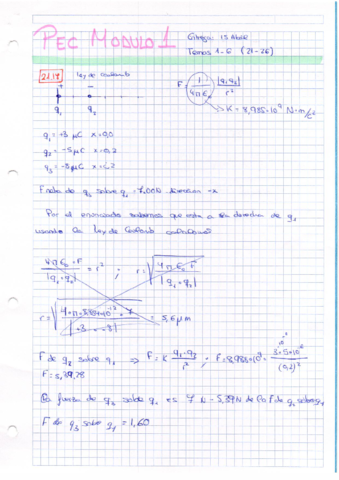 PEC MODULO 1
Entrega: 15 Abril
Temas 1-6 (21-26)
21.18 Ley de coulomb
F = 1/4πε₀ |q₁q₂|/r²
K = 8,985·10⁹ N·m/c²
q₁ q₂
q₁ = +3 µC x=0,0
q₂ = -5 µC x=0,2
q₃ = -8 µC
F neta de sobre q₁ = 7,00N direccion -x
Por el enunciado sabemos que esta a la derecha de q₁
usando la Ley de Coulomb
4πε₀·F / |q₁·q₃| = r² ; r = √ 4πε₀F / |q₁·q₃|
= 5,6 µm
F de q₂ sobre q₁ ⇒ F = K q₁·q₂/r² ; F = 8,988×10⁹ · 3×5×10 / (0,2)²
F = 5,3928
La fuerza de q₃ sobre q₁ es 7 N - 5,39N de la F de q₂ sobre q₁
F de q₃ sobre q₁ = 1,60